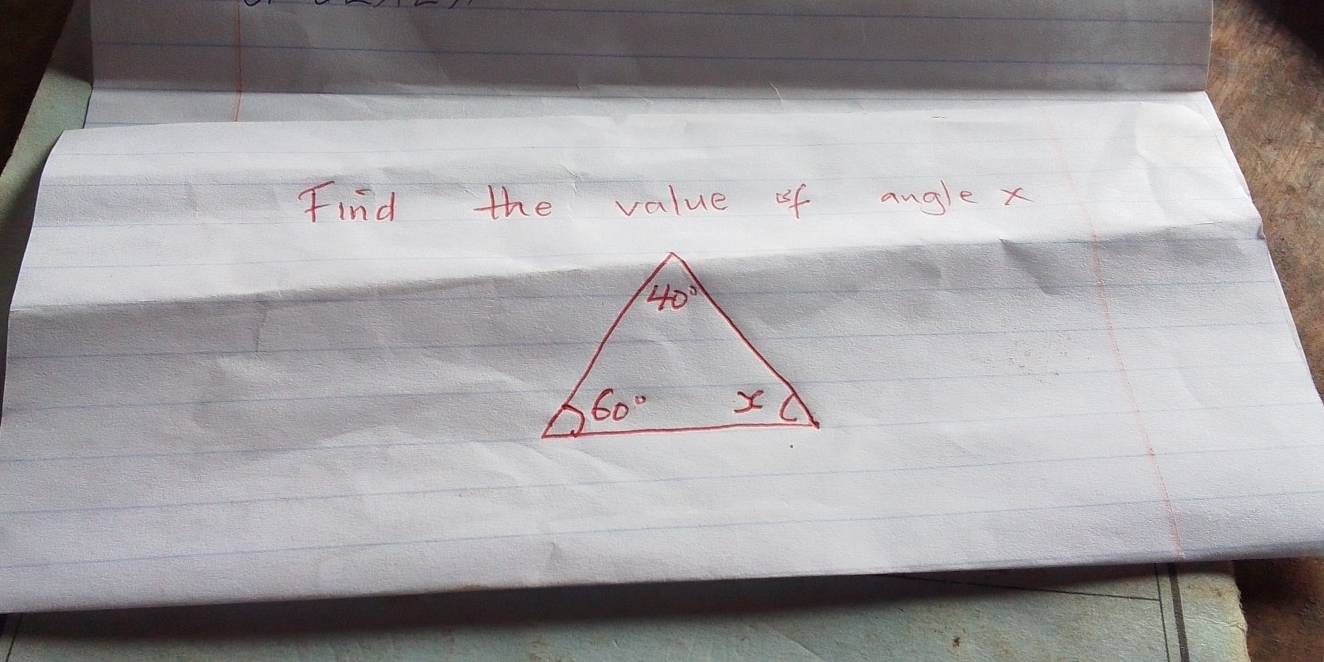 Find the value of angle x
40°
60° x